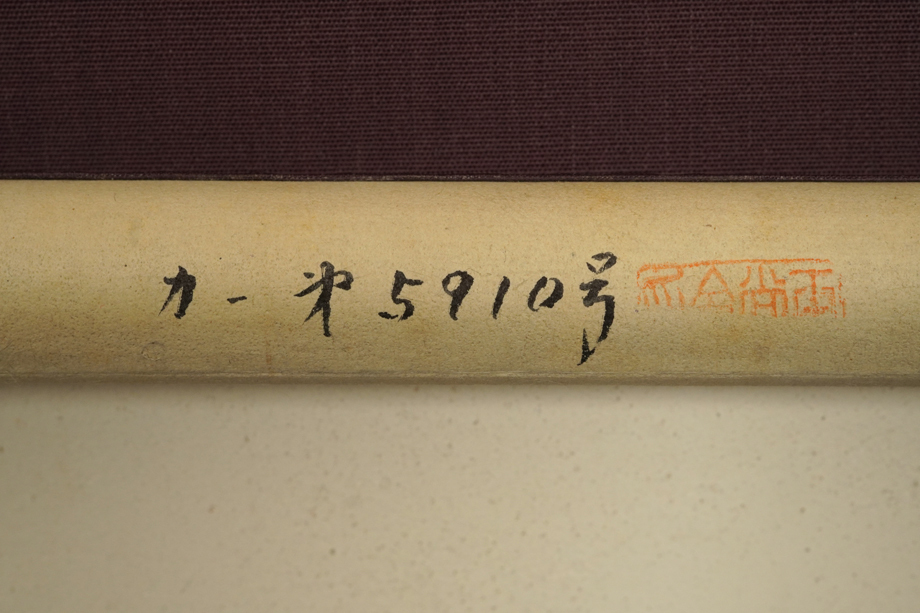 カ-第5910号